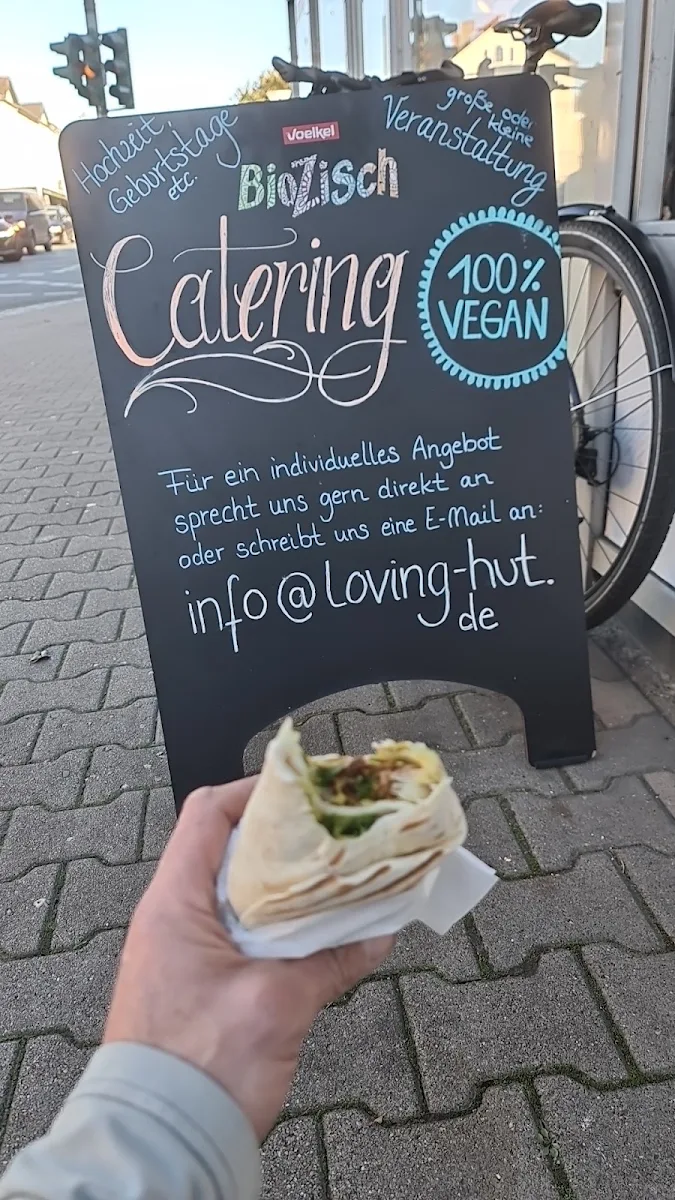 Hochzeit,
Geburtstage
etc.
Voelkel
BioZisch
große oder
kleine
Veranstaltung
Catering
100%
VEGAN
Für ein individuelles Angebot
sprecht uns gern direkt an
oder schreibt uns eine E-Mail an:
info@loving-hut.
de